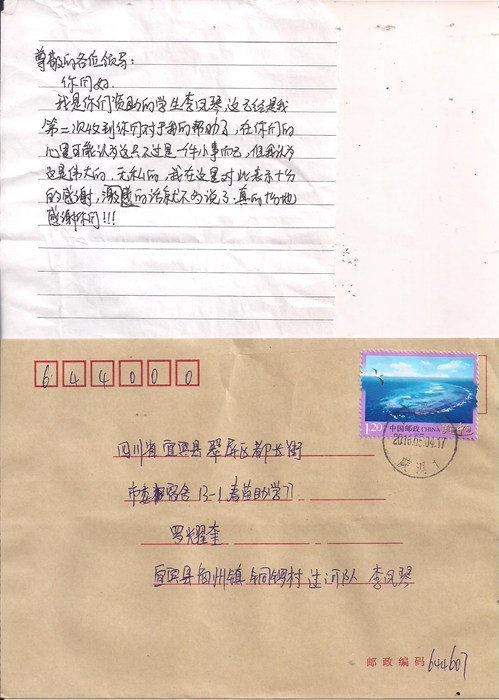 尊敬的各位领导:
你们好
我是你们资助的学生李凤琴,这已经是我
第二次收到你们对于我的帮助了,在你们的
心里可能认为这只不过是一件小事而已,但我认为
这是伟大的、无私的,我在这里对此表示十分
的感谢,感的话就不多说了.真的十分地
感谢你们!!!
644000
1.20元
中国邮政 CHINA
2016.05.04.17
四川省宜宾县翠屏区都长街
市宿舍13-1春苗助学
罗耀奎
宜宾县 州镇铜锣村过河队 李凤琴
邮政编码 644607